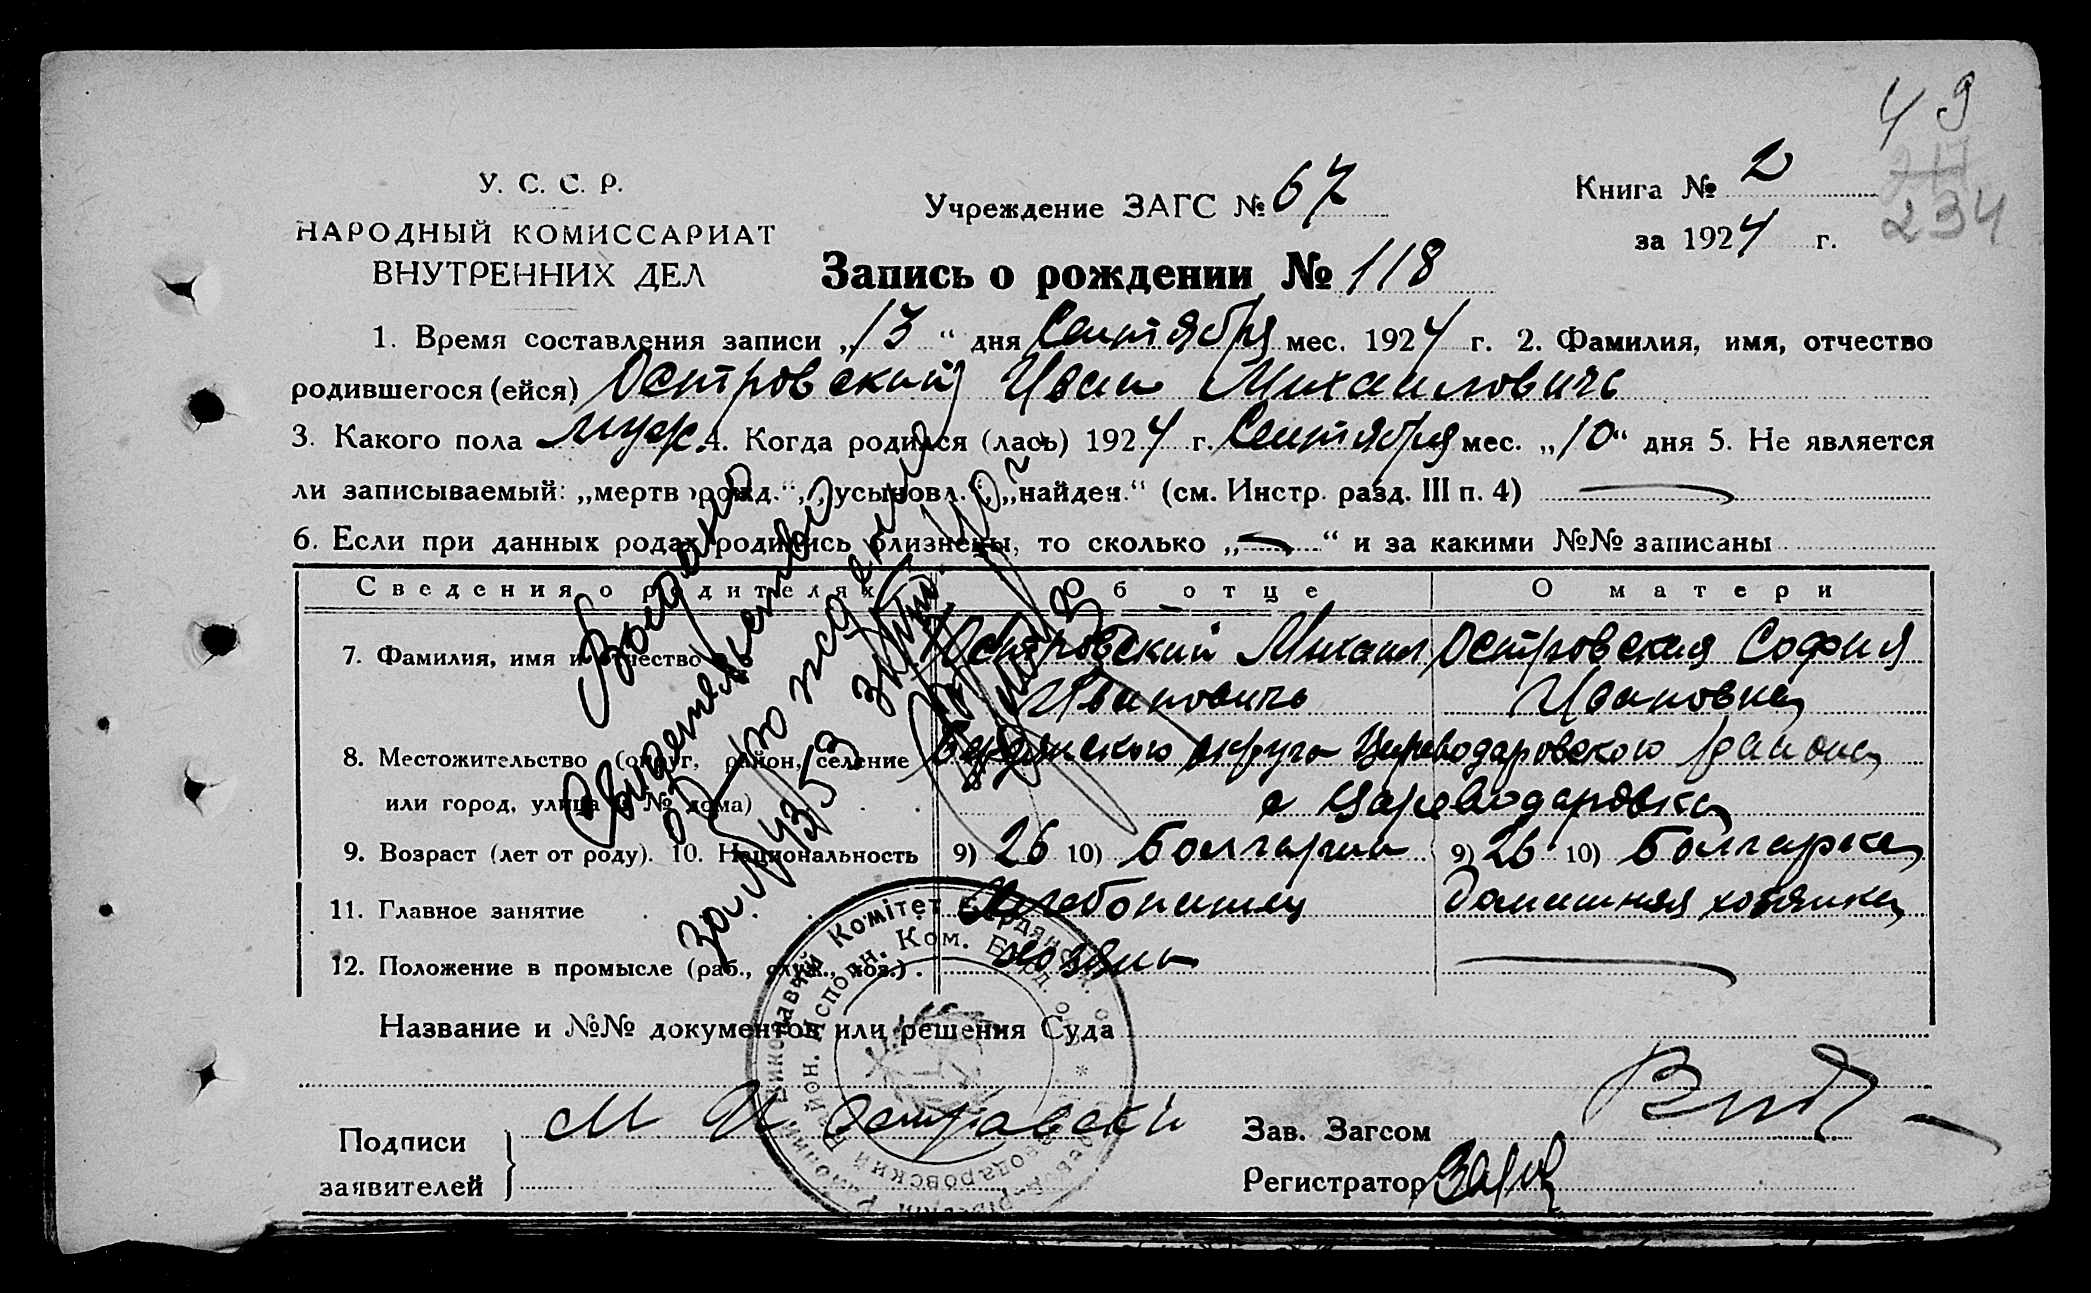 49
234
У. С. С. Р.
НАРОДНЫЙ КОМИССАРИАТ
ВНУТРЕННИХ ДЕЛ
Учреждение ЗАГС № 67
Книга № 2
за 1924 г.
Запись о рождении № 118
1. Время составления записи „13“ дня Сентября мес. 1924 г. 2. Фамилия, имя, отчество
родившегося (ейся) Островский Иван Михаиловичъ
3. Какого пола муж. 4. Когда родился (лась) 1924 г. Сентября мес. „10“ дня 5. Не является
ли записываемый: „мертворожд.“, „усыновл.“, „найден.“ (см. Инстр. разд. III п. 4)
6. Если при данных родах родились близнецы, то сколько „ “ и за какими №№ записаны
Сведения о родителях Об отце О матери
7. Фамилия, имя и отчество Островский Михаил Островская София
Ивановичъ Ивановна
8. Местожительство (округ, район, селение Бердянского округа Цареводаровского района
или город, улица и № дома) с Цареводаровка
9. Возраст (лет от роду). 10. Национальность 9) 26 10) Болгарин 9) 26 10) Болгарка
11. Главное занятие Хлебопашец домашняя хозяйка
12. Положение в промысле (раб., служ., хоз.). хозяин
Название и №№ документов или решения Суда
Подписи
заявителей
М И Островский
Зав. Загсом
Регистратор
Выдано
Свидетельство
о рождении
за №